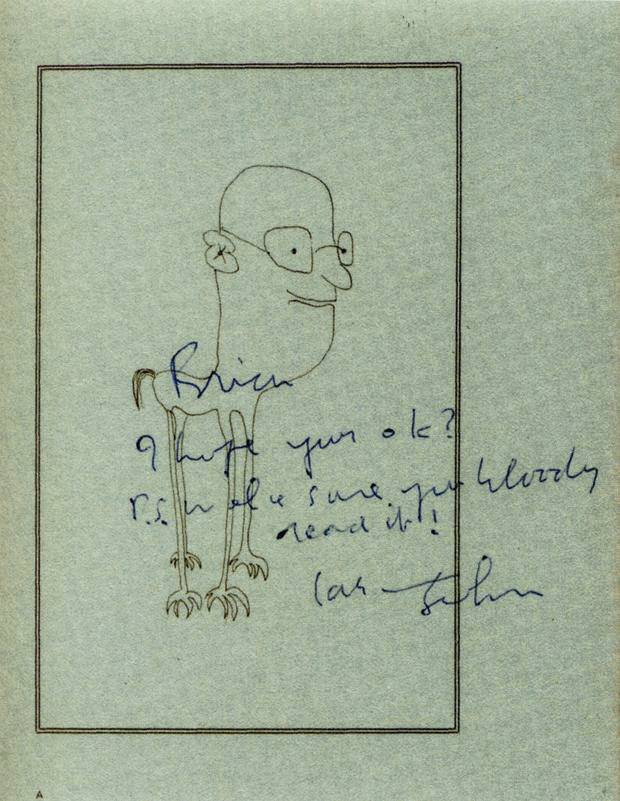 Brian
I hope your ok?
P.S. make sure you bloody
read it!
John
A